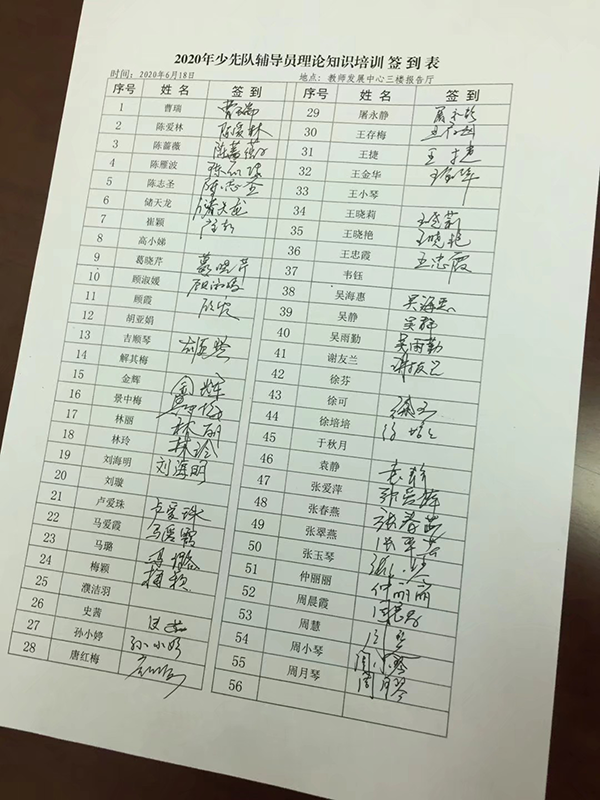 2020年少先队辅导员理论知识培训 签 到 表
时间：2020年6月18日 地点：教师发展中心三楼报告厅
序号 姓 名 签 到 序号 姓 名 签 到
1 曹瑞 曹瑞 29 屠永静 屠永静
2 陈爱林 陈爱林 30 王存梅
3 陈蔷薇 陈蔷薇 31 王捷 王捷
4 陈雁波 陈雁波 32 王金华 王金华
5 陈志圣 陈志圣 33 王小琴
6 储天龙 储天龙 34 王晓莉 王晓莉
7 崔颖 崔颖 35 王晓艳 王晓艳
8 高小娣 36 王忠霞 王忠霞
9 葛晓芹 葛晓芹 37 韦钰
10 顾淑媛 顾淑媛 38 吴海惠 吴海惠
11 顾霞 顾霞 39 吴静 吴静
12 胡亚娟 40 吴雨勤 吴雨勤
13 吉顺琴 吉顺琴 41 谢友兰 谢友兰
14 解其梅 42 徐芬
15 金辉 金辉 43 徐可 徐可
16 景中梅 44 徐培培 徐培培
17 林丽 林丽 45 于秋月
18 林玲 林玲 46 袁静 袁静
19 刘海明 刘海明 47 张爱萍
20 刘璇 48 张春燕 张春燕
21 卢爱珠 卢爱珠 49 张翠燕
22 马爱霞 马爱霞 50 张玉琴
23 马璐 马璐 51 仲丽丽 仲丽丽
24 梅颖 梅颖 52 周晨霞
25 濮洁羽 53 周慧
26 史茜 史茜 54 周小琴 周小琴
27 孙小婷 孙小婷 55 周月琴 周月琴
28 唐红梅 56